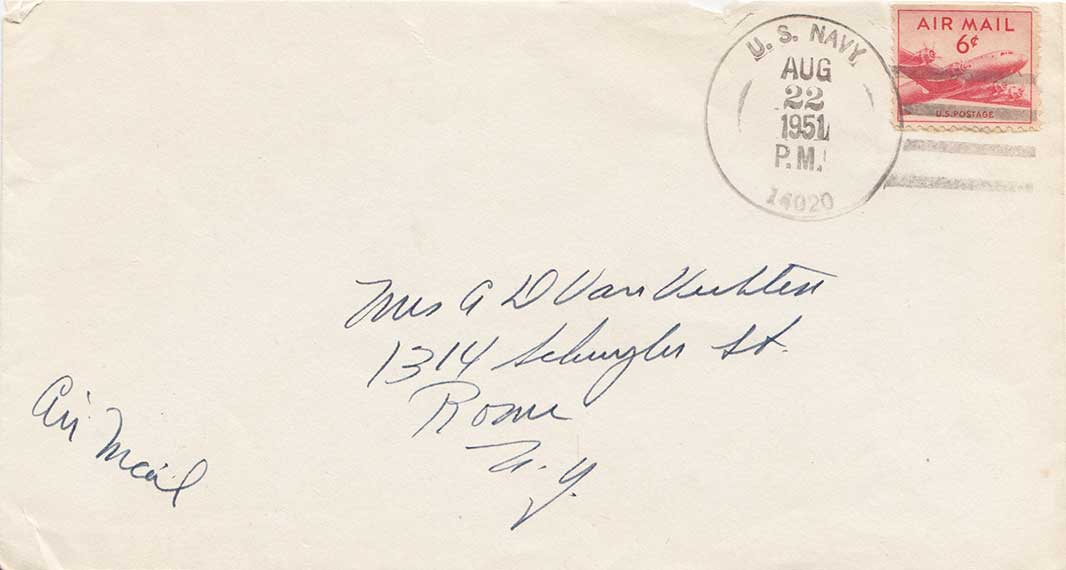 U. S. NAVY.
AUG
22
1951
P.M.
14020
AIR MAIL
6¢
U.S. POSTAGE
Mrs A D Van Vechten
1314 Schuyler St.
Rome
N. Y.
Air Mail